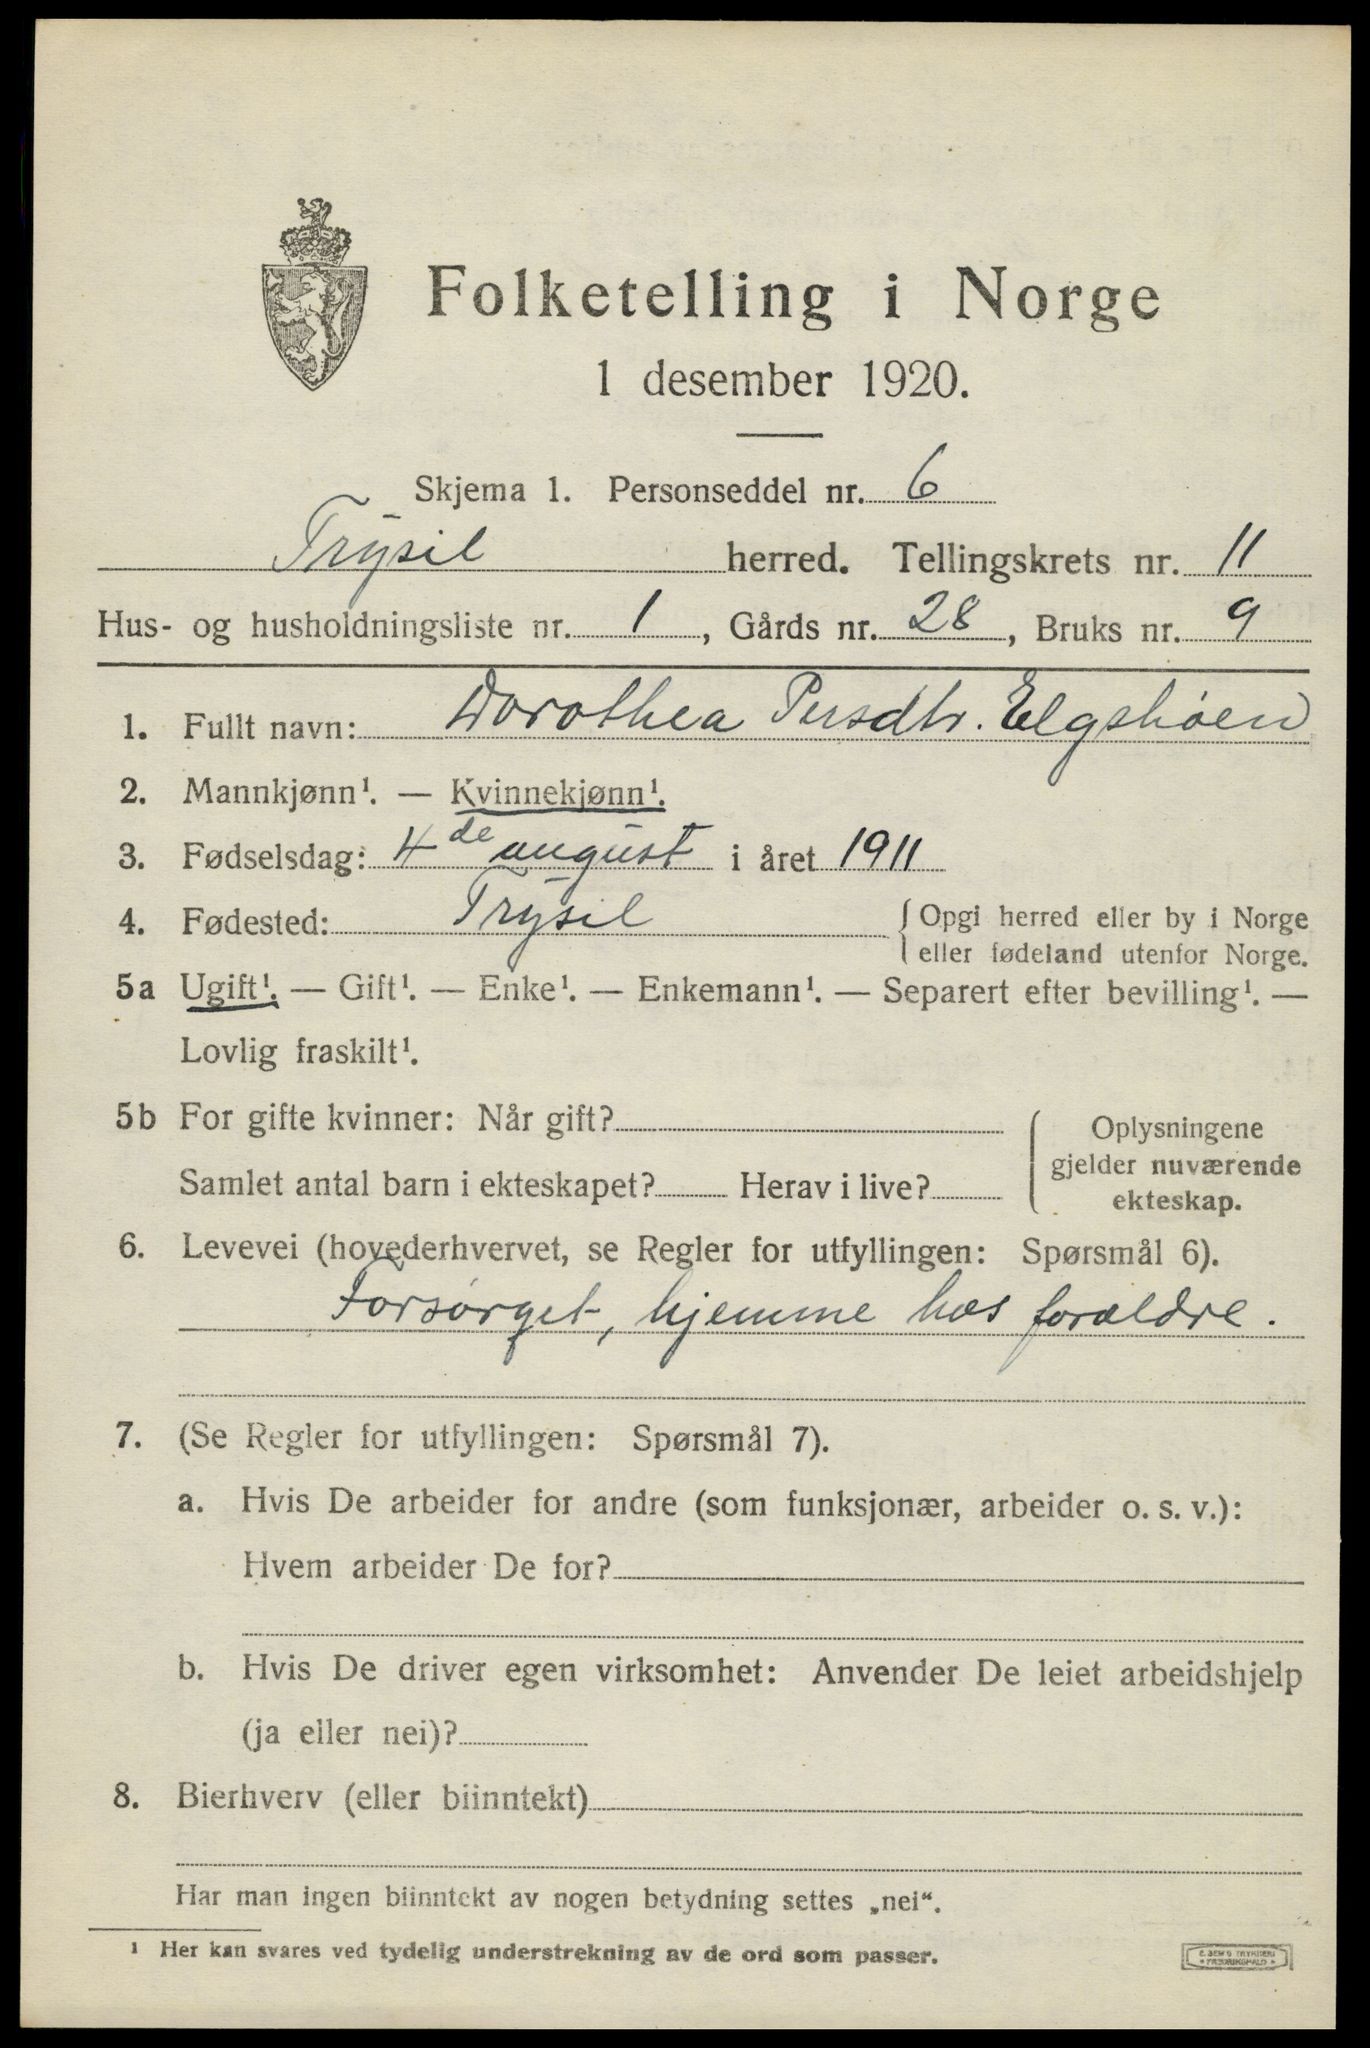 Folketelling i Norge
1 desember 1920.
Skjema 1. Personseddel nr. 6
Trysil herred. Tellingskrets nr. 11
Hus- og husholdningsliste nr. 1, Gårds nr. 28, Bruks nr. 9
1. Fullt navn: Dorothea Persdtr. Elgshøen
2. Mannkjønn¹. — Kvinnekjønn¹.
3. Fødselsdag: 4de august i året 1911
4. Fødested: Trysil { Opgi herred eller by i Norge
eller fødeland utenfor Norge.
5a Ugift¹. — Gift¹. — Enke¹. — Enkemann¹. — Separert efter bevilling¹. —
Lovlig fraskilt¹.
5b For gifte kvinner: Når gift? { Oplysningene
gjelder nuværende
Samlet antal barn i ekteskapet? Herav i live?
ekteskap.
6. Levevei (hovederhvervet, se Regler for utfyllingen: Spørsmål 6).
Forsørget, hjemme hos forældre.
7. (Se Regler for utfyllingen: Spørsmål 7).
a. Hvis De arbeider for andre (som funksjonær, arbeider o. s. v.):
Hvem arbeider De for?
b. Hvis De driver egen virksomhet: Anvender De leiet arbeidshjelp
(ja eller nei)?
8. Bierhverv (eller biinntekt)
Har man ingen biinntekt av nogen betydning settes „nei“.
¹ Her kan svares ved tydelig understrekning av de ord som passer.